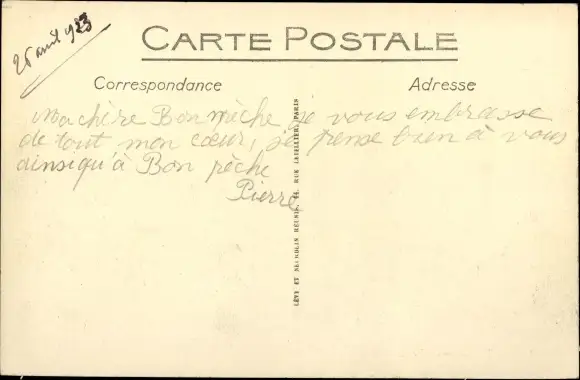 26 avril 1923
CARTE POSTALE
Correspondance
Adresse
Ma chère Bonmèche je vous embrasse
de tout mon cœur, je pense bien à vous
ainsiqu'à Bon pèche
Pierre
LÉVY ET NEURDEIN RÉUNIS, 44, RUE LETELLIER, PARIS